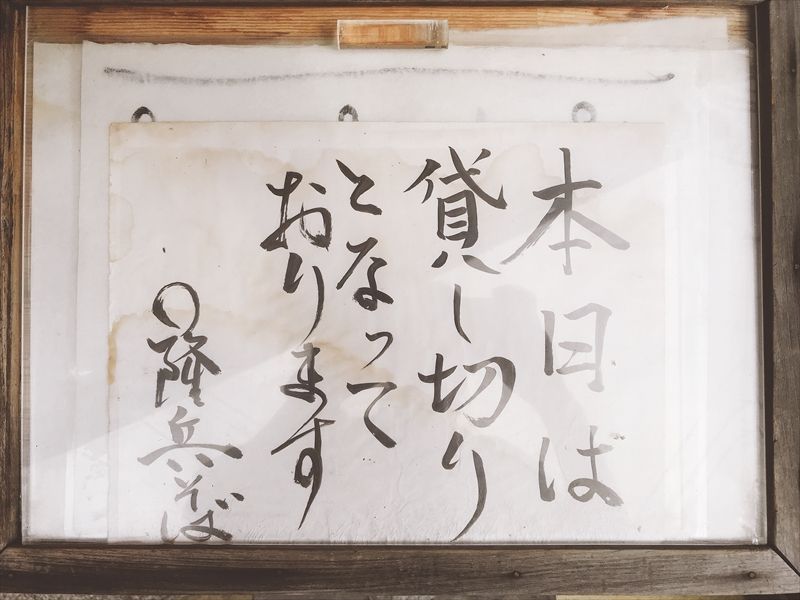 本日は
貸し切り
となって
おります
〇隆兵そば